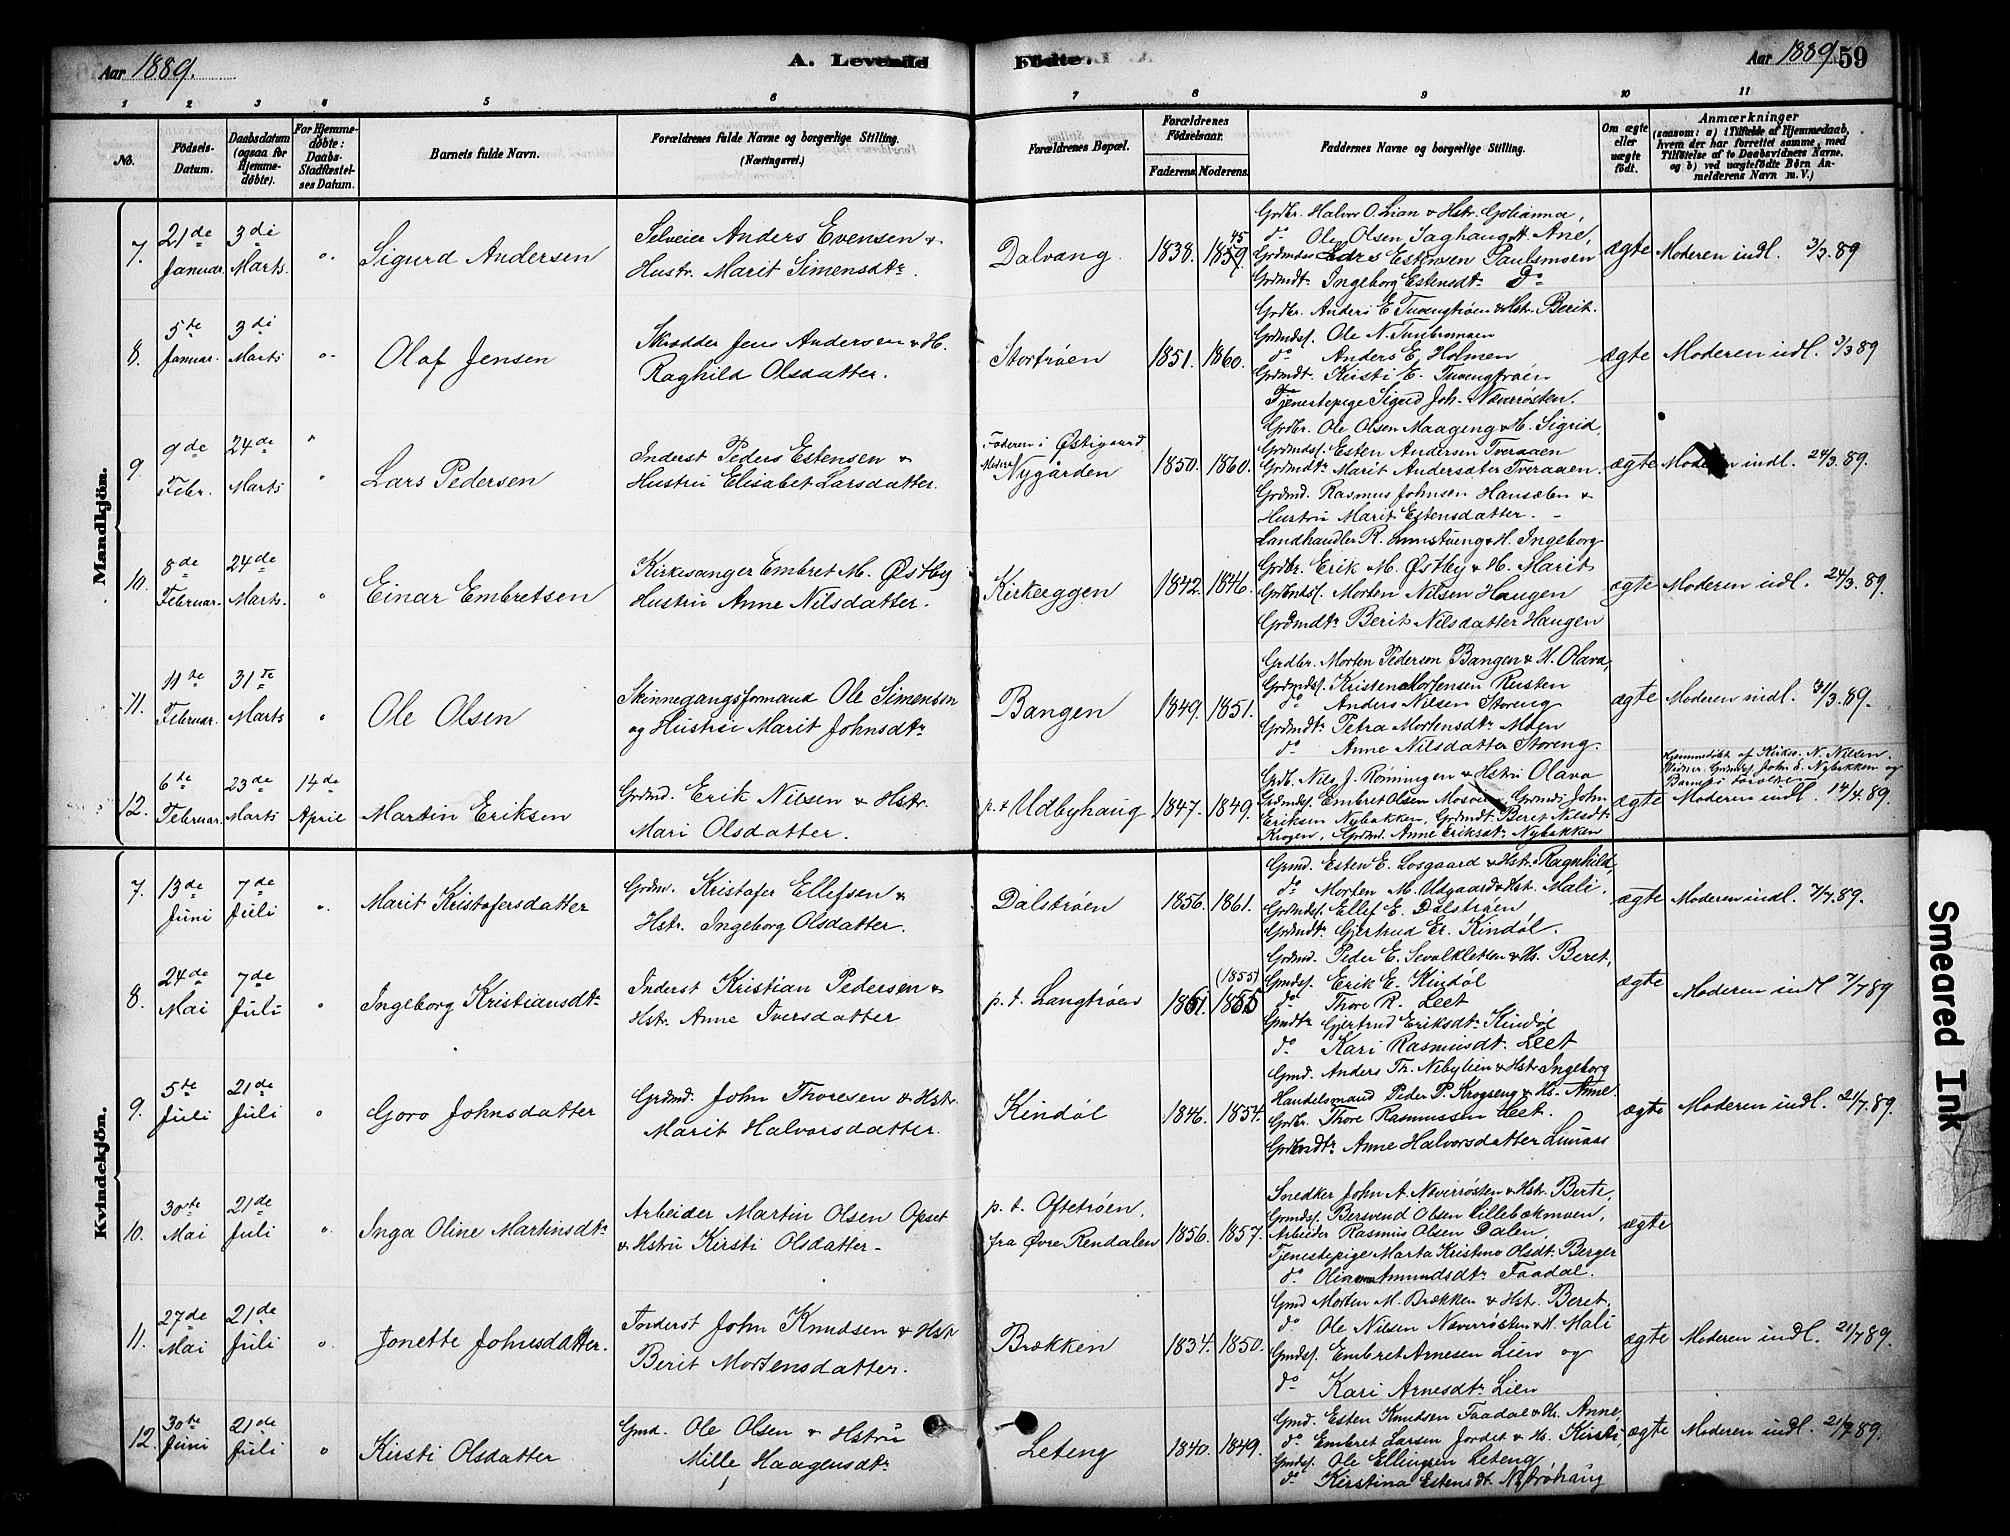 Aar 1889.
A. Levende
Fødte.
Aar 1889
59
1 2 3 4 5 6 7 8 9 10 11
No.
Fødsels-Datum.
Daabsdatum (ogsaa for Hjemme-døbte).
For Hjemme-døbte: Daabs-Stadfæstel-ses Datum.
Barnets fulde Navn.
Forældrenes fulde Navne og borgerlige Stilling.
(Næringsvei.)
Forældrenes Bopæl.
Forældrenes Fødselsaar.
Faderens. Moderens.
Faddernes Navne og borgerlige Stilling.
Om ægte eller uægte født.
Anmærkninger
(saasom: a) i Tilfælde af Hjemmedaab, hvem der har forrettet samme, med Tilføielse af to Daabsvidners Navne, og b) ved uægtefødte Børn An-melderens Navn m. V.)
Mandkjön.
7. 21de Januar. 3di Marts. " Sigurd Andersen
Selveier Anders Evensen &
Hustr. Marit Simensdtr
Dalvang. 1838. 1859. 45
Grdbr. Halvor O. Lian & Hstr. Golianna,
do Ole Olsen Saghaug H. Ane,
Grdmds Estensen Paulsmoen
Grdmdtr Ingeborg Estensdtr Do
ægte Moderen indl. 3/3.89
8. 5te Januar. 3di Marts " Olaf Jensen
Skrædder Jens Andersen & H.
Raghild Olsdatter.
Stortrøen 1851. 1860.
Grdbr. Anders E Tuvengtrøen & Hstr. Berit.
Grdmdsf. Ole N. Tunbromoen
do Anders E. Holmen
Grdmdt. Kirsti E. Tuvengtrøen
Tjenestepige Sigrid Joh. Næverrøsten.
ægte Moderen indl. 3/3 89
9. 9de Febr. 24de Marts " Lars Pedersen
Inderst Peders Estensen &
Hustru Elisabet Larsdatter.
Faderen i Østigaard
Moderen Nygården 1850. 1860.
Grdbr. Ole Olsen Maageng & H. Sigrid,
Grdmdsf. Esten Andersen Tveraaen
Grdmdtr Marit Andersdter Tveraaen.
Grdmd. Rasmus Johnsen Hansælen &
Hustru Marit Estensdatter.
ægte Moderen indl. 24/3.89.
10. 8de Februar. 24de Marts. " Einar Embretsen
Kirkesanger Embret M. Østby
Hustru Anne Nilsdatter.
Kirkeeggen 1842. 1846.
Landhandler R. & H. Ingeborg
Grdbr. Erik M. Østby & H. Marit
Grdmdsf. Morten Nilsen Haugen
Grdmdtr Berit Nilsdatter Haugen
ægte Moderen indl. 24/3.89.
11. 11te Februar. 31te Marts " Ole Olsen
Skinnegangsformand Ole Simensen
og Hustru Marit Johnsdtr
Bangen 1849. 1851.
Grdbr. Morten Pedersen Bangen & H. Olava,
Grdmdsf. Kristen Mortensen Rusten
do Anders Nilsen Storeng
Grdmdtr Petra Mortensdtr Moen
do Anne Nilsdatter Storeng.
ægte Moderen indl. 31/3.89.
12. 6te Februar. 23de Marts 14de April Martin Eriksen
Grdmd. Erik Nilsen & Hstr.
Mari Olsdatter.
p.t. Udbyhaug 1847. 1849.
Grdb. Nils J. Rønningen & Hstru Olava
Grdmdsf. Embret Olsen Grdmds John
Eriksen Nybakken, Grdmdt. Beret Nilsdt.
Krogen, Grdmd. Anne Eriksdtr Nybakken
ægte
Hjemmedøbt af Kirkes. N. Nilsen.
Vidner: Grdmdsf. John E. Nybakken og
Barnets Forældre
Moderen indl. 14/4.89.
Kvindekjön.
7. 13de Juni 7de Juli " Marit Kristofersdatter
Grdm. Kristofer Ellefsen &
Hstr. Ingeborg Olsdatter.
Dalstrøen 1856. 1861.
Gmd. Esten E. Losgaard & Hstr. Ragnhild,
do Morten M. Udgaard & Hst. Mali.
Grdmdsf. Ellef E. Dalstrøen
Grdmdtr Gjertrud Er. Kindøl.
ægte Moderen indl. 7/7.89.
8. 24de Mai 7de Juli " Ingeborg Kristiansdtr
Inderst Kristian Pedersen &
Hstr. Anne Iversdatter
p.t. Langtrøen 1861. 1855 (1855)
Grdmd. Peder E. Sevalkletten & Hs. Beret,
Gmdsf. Erik E. Kindøl
do Thore R. Leet
Gmdtr Gjertrud Eriksdtr Kindøl
do Kari Rasmusdt. Leet
ægte Moderen indl 7/7 89
9. 5te Juli 21de Juli " Goro Johnsdatter
Grdmd. John Thoresen & Hstr.
Marit Halvorsdatter.
Kindøl 1846. 1854.
Gmd. Anders Th. Nebylien & Hstr Ingeborg
Handelsmand Peder P. Krogseng & Hs. Anne.
Grdbr. Thore Rasmussen Leet.
Grdmdtr Anne Halvorsdatter Lunaas
ægte Moderen indl. 21/7.89.
10. 30te Mai 21de Juli " Inga Oline Martinsdtr
Arbeider Martin Olsen Opset
& Hstru Kirsti Olsdatter
p.t. Oftetrøen,
fra Øvre Rendalen 1856. 1857.
Snedker John A. Næverrøsten & Hstr. Berte,
Grmdsf. Bersvend Olsen Lillebækmoen,
Arbeider Rasmus Olsen Dalen,
Tjenestepige Marta Kristine Olsdt. Berger
do Amundsdtr Faadal.
ægte
11. 27de Mai 21de Juli " Jonette Johnsdatter.
Inderst John Knudsen & Hstr
Berit Mortensdatter.
Brækken 1834. 1850.
Gmd Morten M. Brækken & Hstr. Beret,
do Ole Nilsen Næverrøsten & H. Mali
Gmdsf. Embret Arnesen Lien og
do Kari Arnesdtr Lien
ægte Moderen indl. 21/7 89.
12. 30te Juni 21de Juli " Kirsti Olsdatter
Gmd. Ole Olsen & Hstru
Mille Haagensdtr
Leteng 1840. 1849.
Gmd. Esten Knudsen Faadal & Hs. Anne,
do Embret Larsen Jordet & Hs. Kirsti,
Gmdsf. Ole Ellingsen Leteng
do Kirstina Estensdt. Nytrøhaug
ægte Moderen indl. 21/7 89.
Smeared Ink